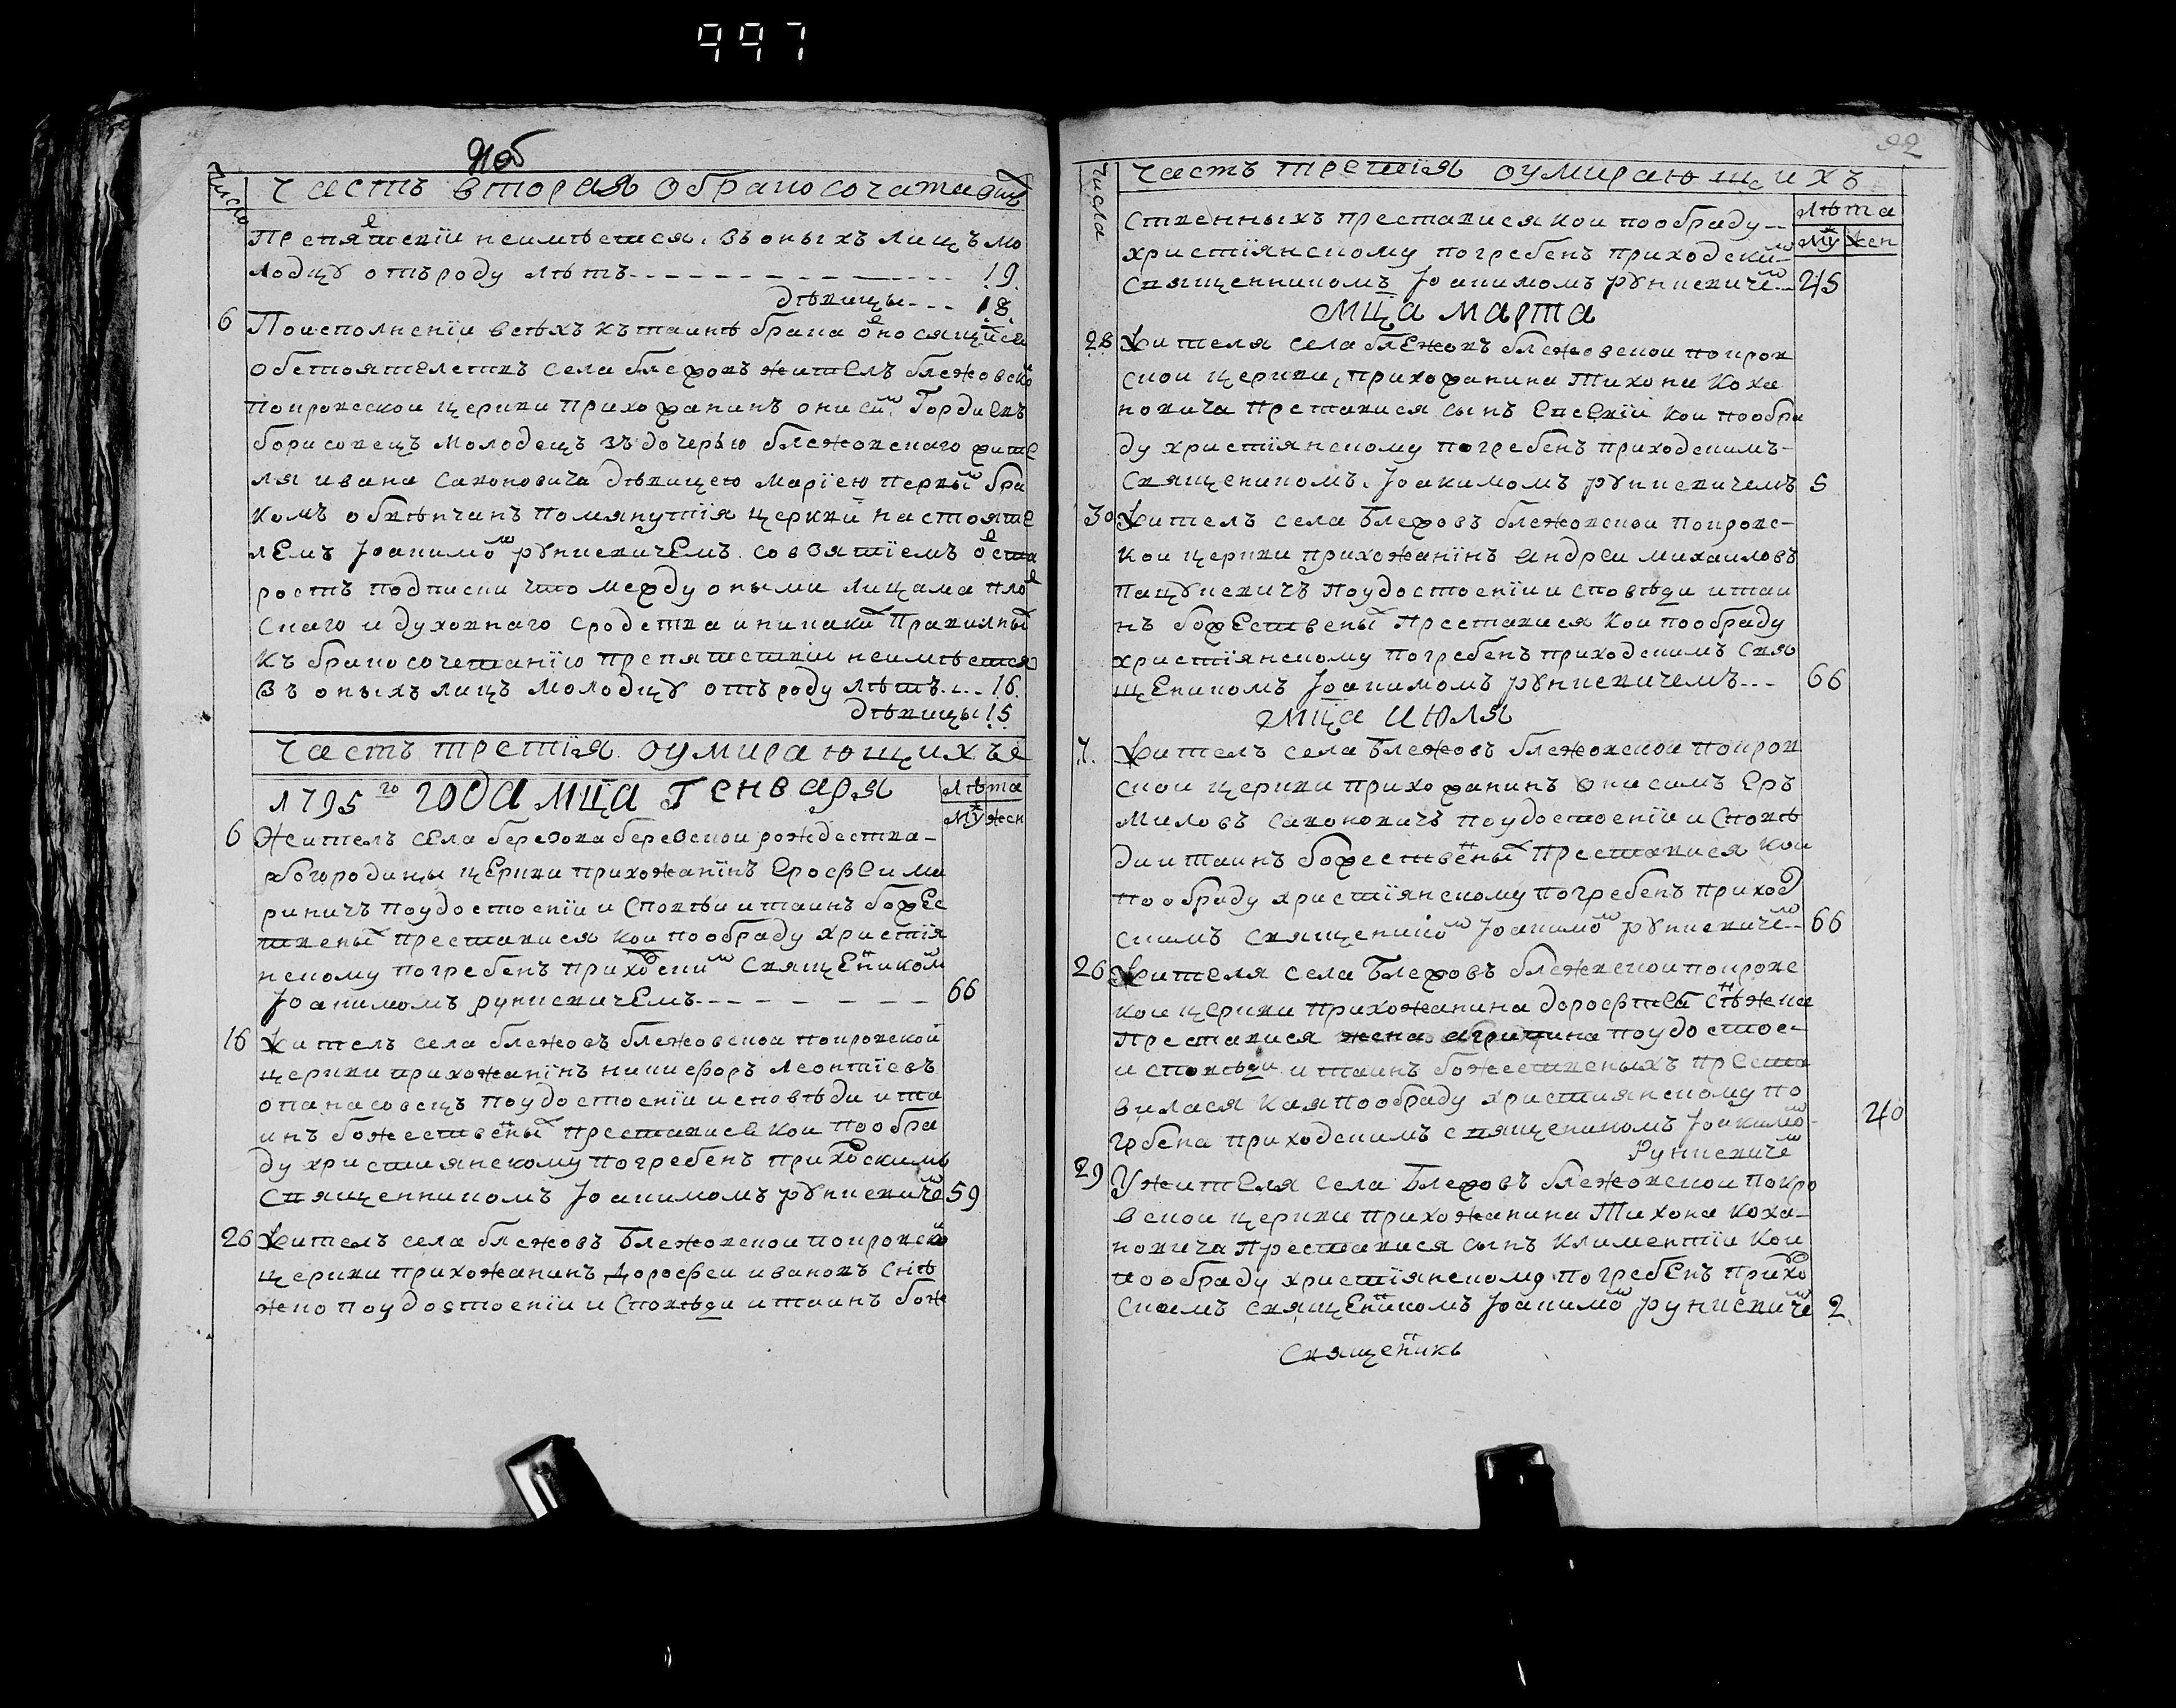 997
Число
Часть вторая о бракосочатавших
Препятствіи неимѣется. Въ оныхъ лицъ мо
лодцу отъ роду лѣтъ - - - 19.
дѣвицы - - - 18.
6 По исполненіи всѣхъ къ таинѣ брака относящійся
обстоятелствъ села блежовъ жителъ блежовской
покровской церкви прихожанинъ Гордѣевъ
борисовецъ молодецъ зъ дочерью блежовскаго жите
ля ивана саконовича дѣвицею маріею первым бра
комъ обвѣнчанъ помянутія церкви настояте
лемъ Іоакимом рункевичемъ со взятіемъ
рость подписки что между оными лицама пло
скаго и духовнаго сродства и никаких правилных
къ бракосочетанію препятствіи неимѣется
Въ оныхъ лицъ молодцу отъ роду лѣтъ - - 16.
дѣвицы 15
Часть третія оумирающихъ
1795го года мца Генваря
Лѣта
муж жен
6 Жителъ села березова березскои рождества-
богородицы церкви прихожанінъ ерофеи ма
риничъ по удостоеніи исповѣи и таинъ божес
твеных преставися кои по обряду христія
нскому погребенъ приходским священником
Іоакимомъ рункевичемъ - - - 66
16 Жителъ села блежовъ блежовскои покровской
церкви прихожанінъ никифоръ леонтіевъ
опанасовецъ по удостоеніи исповѣди и та
инъ божественых преставися кои по обря
ду християнскому погребенъ приходскимъ
священникомъ Іоакимомъ рункевичем 59
26 Жителъ села блежовъ Блежовскои покровской
церкви прихожанинъ дорофеи ивановъ снѣ
жко по удостоеніи исповѣди и таинъ боже
92
Числа
Часть третіія оумирающихъ
Лѣта
муж жен
ственныхъ преставися кои по обряду -
христіянскому погребен приходским
священникомъ Іоакимомъ рункевичем - 45
Мца марта
28 Жителя села блежовъ блежовскои покров
скои церкви, прихожанина Тихона Коха
новича преставися сынъ Евсевіи кои по обря
ду христіянскому погребен приходскимъ -
священикомъ Іоакимомъ рункевичемъ 5
30 Жителъ села Блежовъ блежовскои покровс-
кои церкви прихожанінъ андреи михаиловъ
пацукевичъ по удостоеніи исповѣди и таи
нъ божественых преставися кои по обряду
христіянскому погребенъ приходскимъ свя
щеникомъ Іоакимомъ рункевичемъ - - - 66
Мца июля
7. Жителъ села Блежовъ блежовскои покров
скои церкви прихожанинъ онисимъ ер
миловъ саконовичъ по удостоеніи исповѣ
ди и таинъ божественых преставися кои
по обряду христіянскому погребенъ приход
скимъ священиком Іоакимом рункевичем - 66
26 Жителя села Блежовъ блежвскои покровс
кои церкви прихожанина дорофтея снѣжка
преставися жена агрипина по удостое-
и сповѣди и таинъ божественыхъ преста
вилася кая по обряду християнскому по
гребена приходскимъ священикомъ Іоакимом
Рункевичем 40
29 У жителя села Блежовъ блежовскои покро
вскои церкви прихожанина Тихона коха-
новича преставися сынъ климентіи кои
по обряду христіянскому погребенъ прихо
скимъ священикомъ Іоакимом рункевичем 2.
священикъ